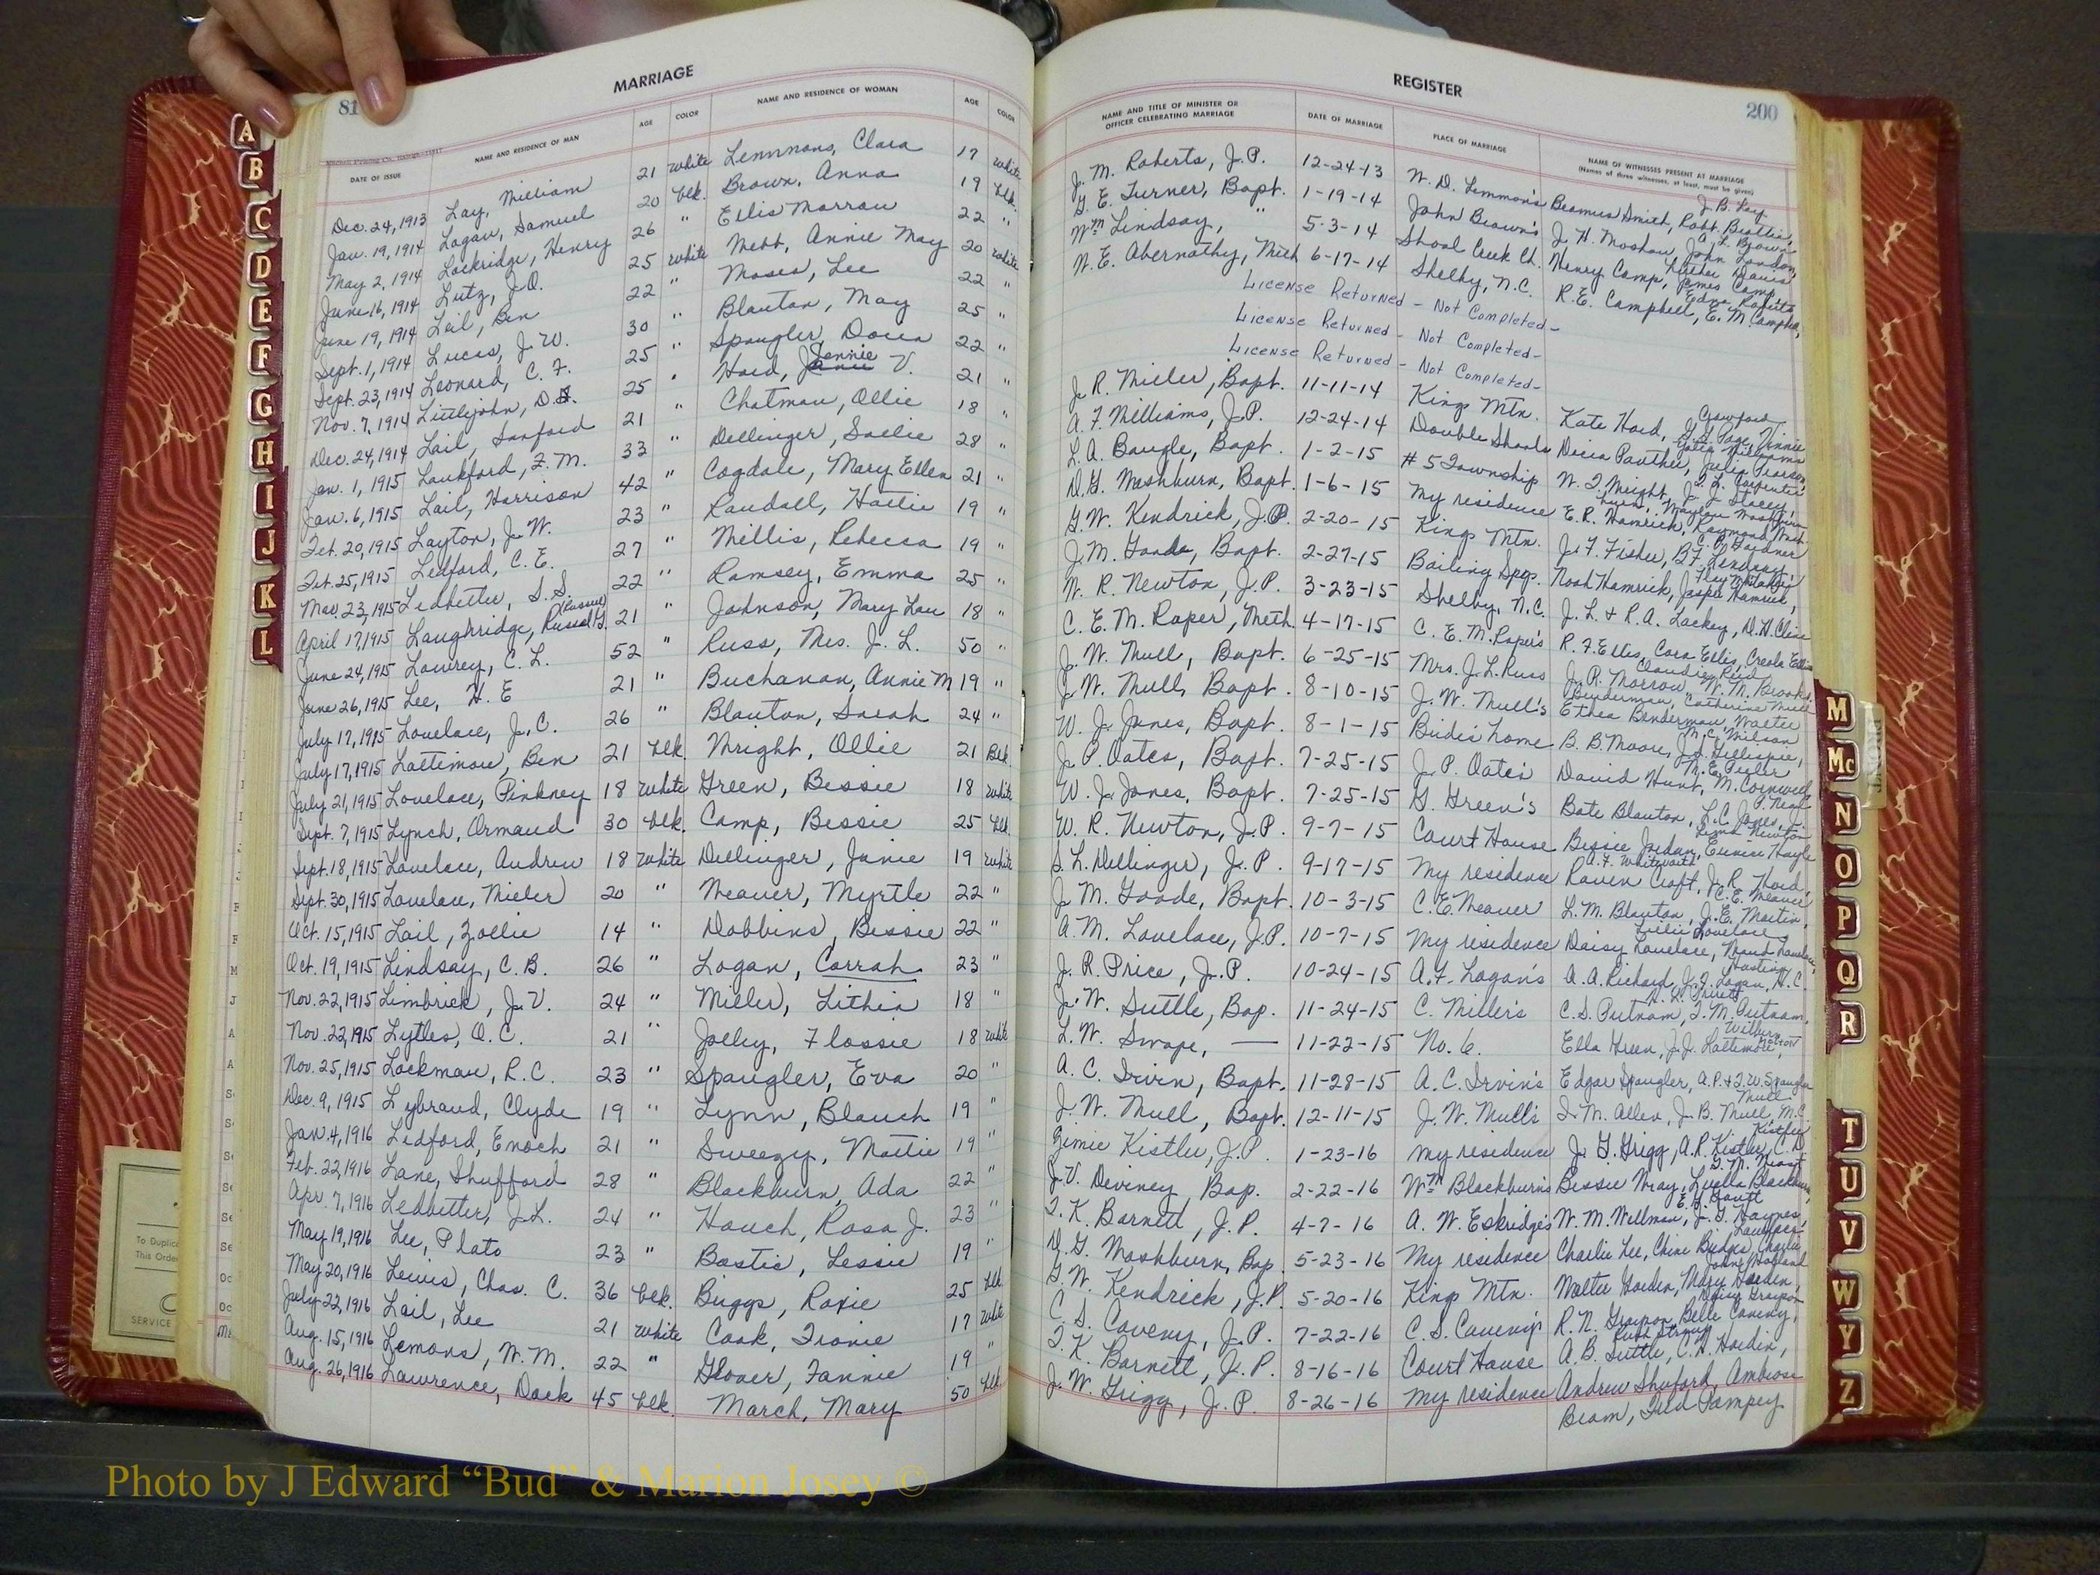 MARRIAGE
81
DATE OF ISSUE NAME AND RESIDENCE OF MAN AGE COLOR NAME AND RESIDENCE OF WOMAN AGE COLOR
Dec. 24, 1913 Lay, William 21 white Lemmons, Clara 17 white
Jan. 19, 1914 Logan, Samuel 20 blk. Brown, Anna 19 blk.
May 2, 1914 Lockridge, Henry 26 " Ellis Morrow 22 "
June 16, 1914 Lutz, J.O. 25 white Webb, Annie May 20 white
June 19, 1914 Lail, Ben 22 " Moses, Lee 22 "
Sept. 1, 1914 Lucas, J. W. 30 " Blanton, May 25 "
Sept. 23, 1914 Leonard, C. F. 25 " Spangler, Dovia 22 "
Nov. 7, 1914 Littlejohn, D. 25 " Hord, Jennie V. 21 "
Dec. 24, 1914 Lail, Sanford 21 " Chatman, Ollie 18 "
Jan. 1, 1915 Lankford, F. M. 33 " Dellinger, Sallie 28 "
Jan. 6, 1915 Lail, Harrison 42 " Cogdale, Mary Ellen 21 "
Feb. 20, 1915 Layton, J. W. 23 " Randall, Hattie 19 "
Feb. 25, 1915 Ledford, C. E. 27 " Willis, Rebecca 19 "
Mar. 23, 1915 Ledbetter, S. S. 22 " Ramsey, Emma 25 "
April 17, 1915 Laughridge, Russel G. (Russell) 21 " Johnson, Mary Lou 18 "
June 24, 1915 Lowrey, C. L. 52 " Russ, Mrs. J. L. 50 "
June 26, 1915 Lee, H. E 21 " Buchanan, Annie M 19 "
July 17, 1915 Lovelace, J. C. 26 " Blanton, Sarah 24 "
July 17, 1915 Lattimore, Ben 21 blk. Wright, Ollie 21 Blk.
July 21, 1915 Lovelace, Pinkney 18 white Green, Bessie 18 white
Sept. 7, 1915 Lynch, Ormand 30 blk. Camp, Bessie 25 blk.
Sept. 18, 1915 Lovelace, Andrew 18 white Dellinger, Janie 19 white
Sept. 30, 1915 Lovelace, Miller 20 " Weaver, Myrtle 22 "
Oct. 15, 1915 Lail, Zollie 14 " Dobbins, Bessie 22 "
Oct. 19, 1915 Lindsay, C. B. 26 " Logan, Corrah 23 "
Nov. 22, 1915 Limbrick, J. V. 24 " Miller, Lithia 18 "
Nov. 22, 1915 Lytles, O. C. 21 " Jolley, Flossie 18 white
Nov. 25, 1915 Lockman, R. C. 23 " Spangler, Eva 20 "
Dec. 9, 1915 Lybrand, Clyde 19 " Lynn, Blanch 19 "
Jan. 4, 1916 Ledford, Enoch 21 " Sweezy, Mattie 19 "
Feb. 22, 1916 Lane, Shufford 28 " Blackburn, Ada 22 "
Apr. 7, 1916 Ledbetter, J. L. 24 " Houch, Rosa J. 23 "
May 19, 1916 Lee, Plato 23 " Bostic, Lessie 19 "
May 20, 1916 Lewis, Chas. C. 36 blk. Biggs, Roxie 25 blk
July 22, 1916 Lail, Lee 21 white Cook, Fronie 17 white
Aug. 15, 1916 Lemons, W. M. 22 " Glover, Fannie 19 "
Aug. 26, 1916 Lawrence, Dock 45 blk. March, Mary 50 blk
REGISTER
200
NAME AND TITLE OF MINISTER OR OFFICER CELEBRATING MARRIAGE DATE OF MARRIAGE PLACE OF MARRIAGE NAME OF WITNESSES PRESENT AT MARRIAGE
(Names of three witnesses, at least, must be given)
J. M. Roberts, J. P. 12-24-13 W. D. Lemmon's Beamus Smith, Robt. Beattie, J. B. Key
G. E. Turner, Bapt. 1-19-14 John Brown's J. H. Moshow, John London, A. L. Brown
Wm Lindsay, " 5-3-14 Shoal Creek Ch. Henry Camp, James Camp
N. E. Abernathy, Meth 6-17-14 Shelby, N.C. R. E. Campbell, E. M. Campbell, Edna Roberts
License Returned - Not Completed -
License Returned - Not Completed -
License Returned - Not Completed -
J. R. Miller, Bapt. 11-11-14 Kings Mtn. Kate Hord, Crawford
A. F. Williams, J. P. 12-24-14 Double Shoals Docia Panther, Julia Pearson,
L. A. Baugle, Bapt. 1-2-15 # 5 Township W. T. Wright, J. J. Stacey, Carpenter
D. G. Washburn, Bapt. 1-6-15 my residence E. R. Hamrick, Raymond Washburn
G. W. Kendrick, J. P. 2-20-15 Kings Mtn. J. F. Fisher, B. F. Lindsay, C. B. Gardner
J. M. Goode, Bapt. 2-27-15 Boiling Spgs. Noah Hamrick, Jasper Hamrick,
W. R. Newton, J. P. 3-23-15 Shelby, N.C. J. L. & R. A. Lackey, D. H. Cline
C. E. M. Raper, Meth. 4-17-15 C. E. M. Raper's R. F. Ellis, Cora Ellis, Creola Ellis
J. W. Mull, Bapt. 6-25-15 Mrs. J. L. Russ J. P. Morrow, W. M. Brooks, Claud Reid
J. W. Mull, Bapt. 8-10-15 J. W. Mull's Ethea Benderman, Walter Benderman, Catherine Mull
W. J. Jones, Bapt. 8-1-15 Bride's home B. B. Moore, J. S. Gillespie, M. C. Wilson
J. P. Oates, Bapt. 7-25-15 J. P. Oate's David Hunt, M. Cornwell
W. J. Jones, Bapt. 7-25-15 G. Green's Bate Blanton, L. C. Jones, J. P. Neal
W. R. Newton, J. P. 9-7-15 Court House Bessie Jordan, Eunice Hoyle, Lema Newton
S. L. Dellinger, J. P. 9-17-15 my residence Raven Croft, J. R. Hord, A. F. Whitworth
J. M. Goode, Bapt. 10-3-15 C. E. Weaver L. M. Blanton, J. E. Martin, C. E. Weaver
A. M. Lovelace, J. P. 10-7-15 my residence Daisy Lovelace, Maud Lovelace, Lillie Lovelace
J. R. Price, J. P. 10-24-15 A. F. Logan's A. A. Richard, J. F. Logan, H. C.
J. W. Suttle, Bap. 11-24-15 C. Miller's C. S. Putnam, T. M. Putnam,
L. W. Swope, — 11-22-15 No. 6. Ella Green, J. J. Lattimore,
A. C. Irvin, Bapt. 11-28-15 A. C. Irvin's Edgar Spangler, A. P. & T. W. Spangler
J. W. Mull, Bapt. 12-11-15 J. W. Mull's T. M. Allen, J. B. Mull, M. C. Mull
Gimie Kistler, J. P. 1-23-16 my residence J. G. Grigg, A. P. Kistler, C. D. Kistler
J. V. Deviney, Bap. 2-22-16 Wm Blackburn's Bessie Wray, Luella Blackburn,
T. K. Barnett, J. P. 4-7-16 A. W. Eskridge's W. M. Wellman, J. G. Haynes, E. Y. Gantt
D. G. Washburn, Bap. 5-23-16 my residence Charlie Lee, Chive Bridges, Charlie
G. W. Kendrick, J. P. 5-20-16 Kings Mtn. Walter Harden, Mary Harden,
C. S. Caveny, J. P. 7-22-16 C. S. Caveny's R. N. Grayson, Belle Caveny,
T. K. Barnett, J. P. 8-16-16 Court House A. B. Suttle, C. A. Hardin,
J. W. Grigg, J. P. 8-26-16 my residence Andrew Shuford, Ambrose
Beam, Fred Pampey
A
B
C
D
E
F
G
H
I
J
K
L
M
Mc
N
O
P
Q
R
T
U
V
W
Y
Z
To Duplic
This Order
SERVICE
Photo by J Edward "Bud" & Marion Josey ©